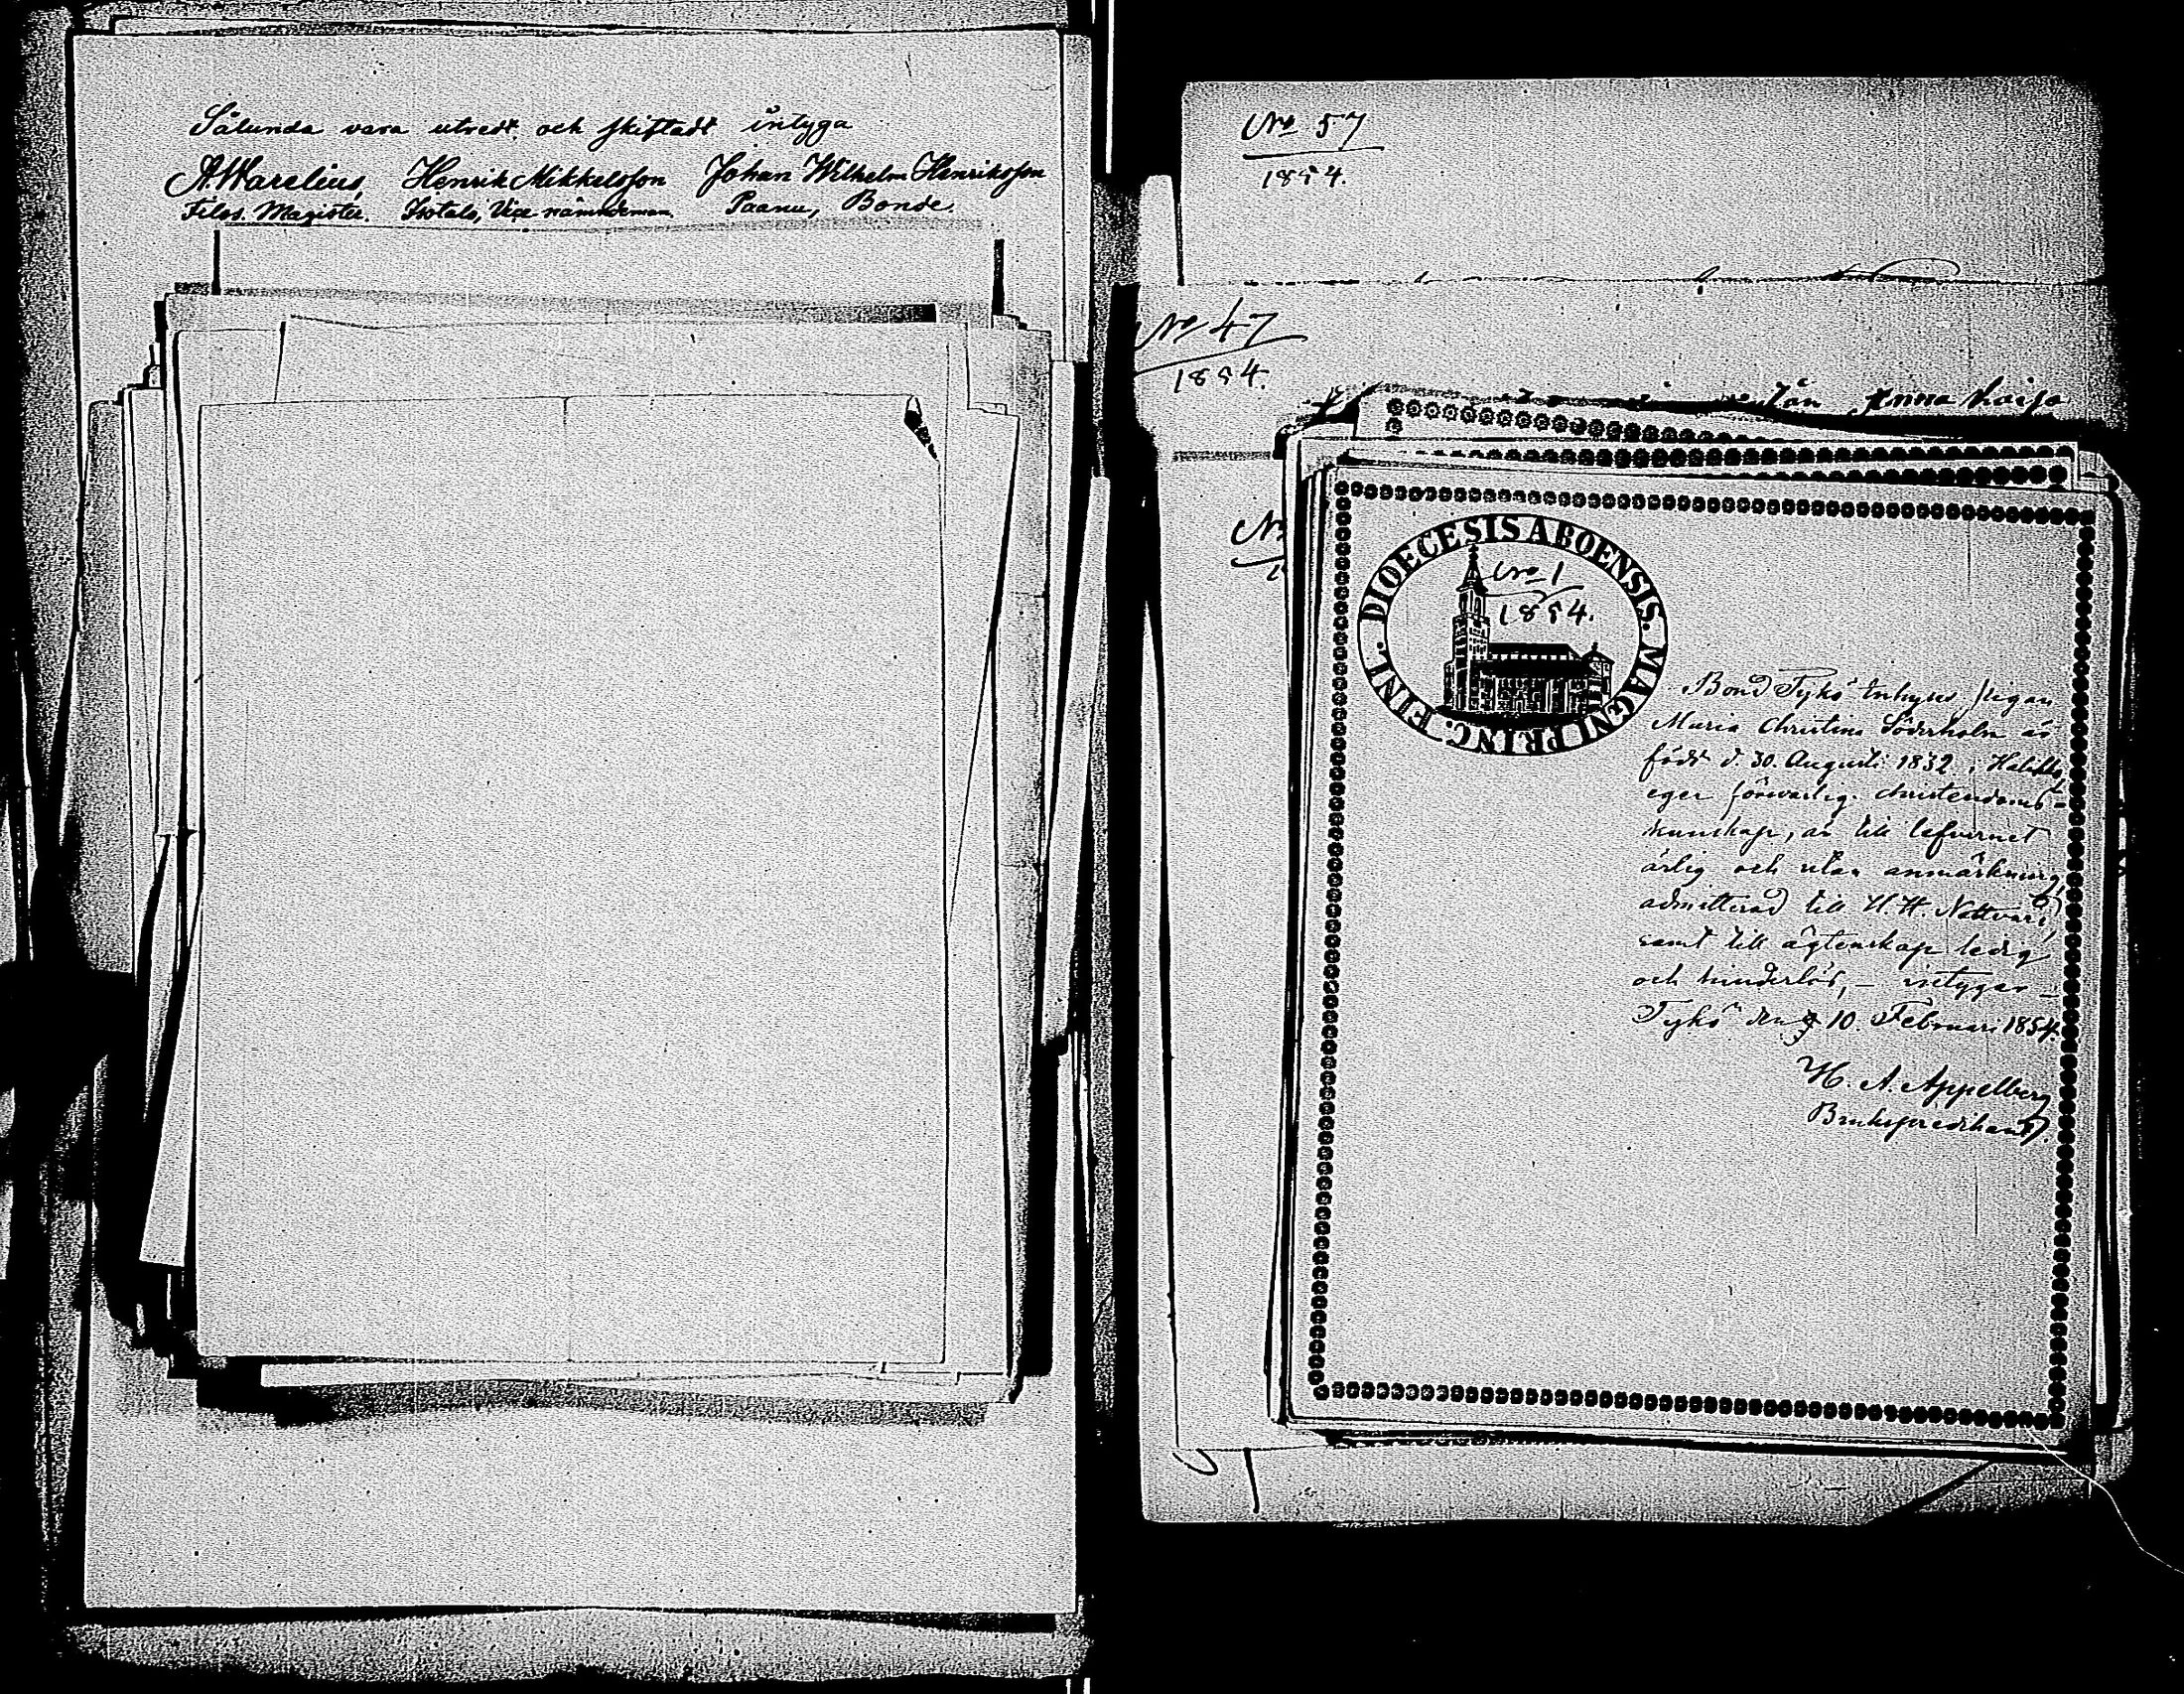 Sålunda vara utredt och skiftadt intyga
A. Warelius, Henrik Mikkelsson Johan Wilhelm Henriksson
Filos. Magister. Isotalo, Vice nämndeman. Paanu, Bonde.
No 57
1854.
No 47
1854.
från Anna Kaisa
No
1
DIOECESIS ABOENSIS. MAGNI PRINC. FINL.
No 1
1854.
Tykö Inhyses pigan
Maria Christina Söderholm är
född d. 30. Augusti 1832 i
eger förvarlig christendoms-
kunskap, är till lefvernet
ärlig och utan anmärkning,
admitterad till H. H. Nattvard
samt till ägtenskap ledig
och hinderlös, – intygar –
Tykö den 10. Februari 1854.
H. A. Appelberg
Brukspredikant.